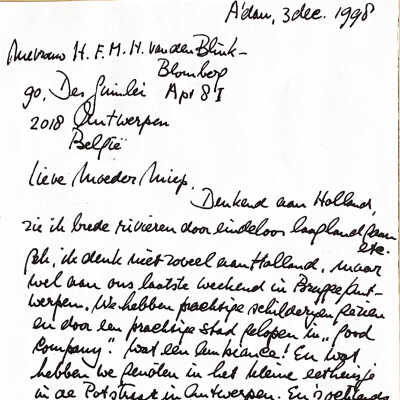 A'dam, 3 dec. 1998
Mevrouw H.F.M.H. van den Blink-
Blomberg
go, Des Guinlei Apt 8 I
2018 Antwerpen
België
Lieve Moeder Miep.
Denkend aan Holland,
zie ik brede rivieren door eindeloos laagland gaan
etc.
Eh, ik denk niet zoveel aan Holland, maar
wel aan ons laatste weekend in Brugge/Ant-
werpen. We hebben prachtige schilderijen gezien
en door een prachtige stad gelopen in "good
company". Wat een ambiance! En wat
hebben we genoten in het kleine eethuisje
in de Potstraat in Antwerpen. En zoiets